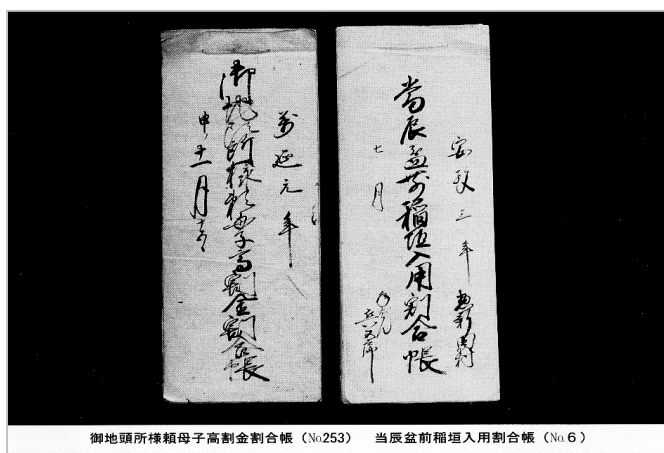 安政三年
当辰盆前稲垣入用割合帳
七月
萬延元年
御地頭所様頼母子高割金割合帳
申十一月
御地頭所様頼母子高割金割合帳（No.253）　当辰盆前稲垣入用割合帳（No.6）